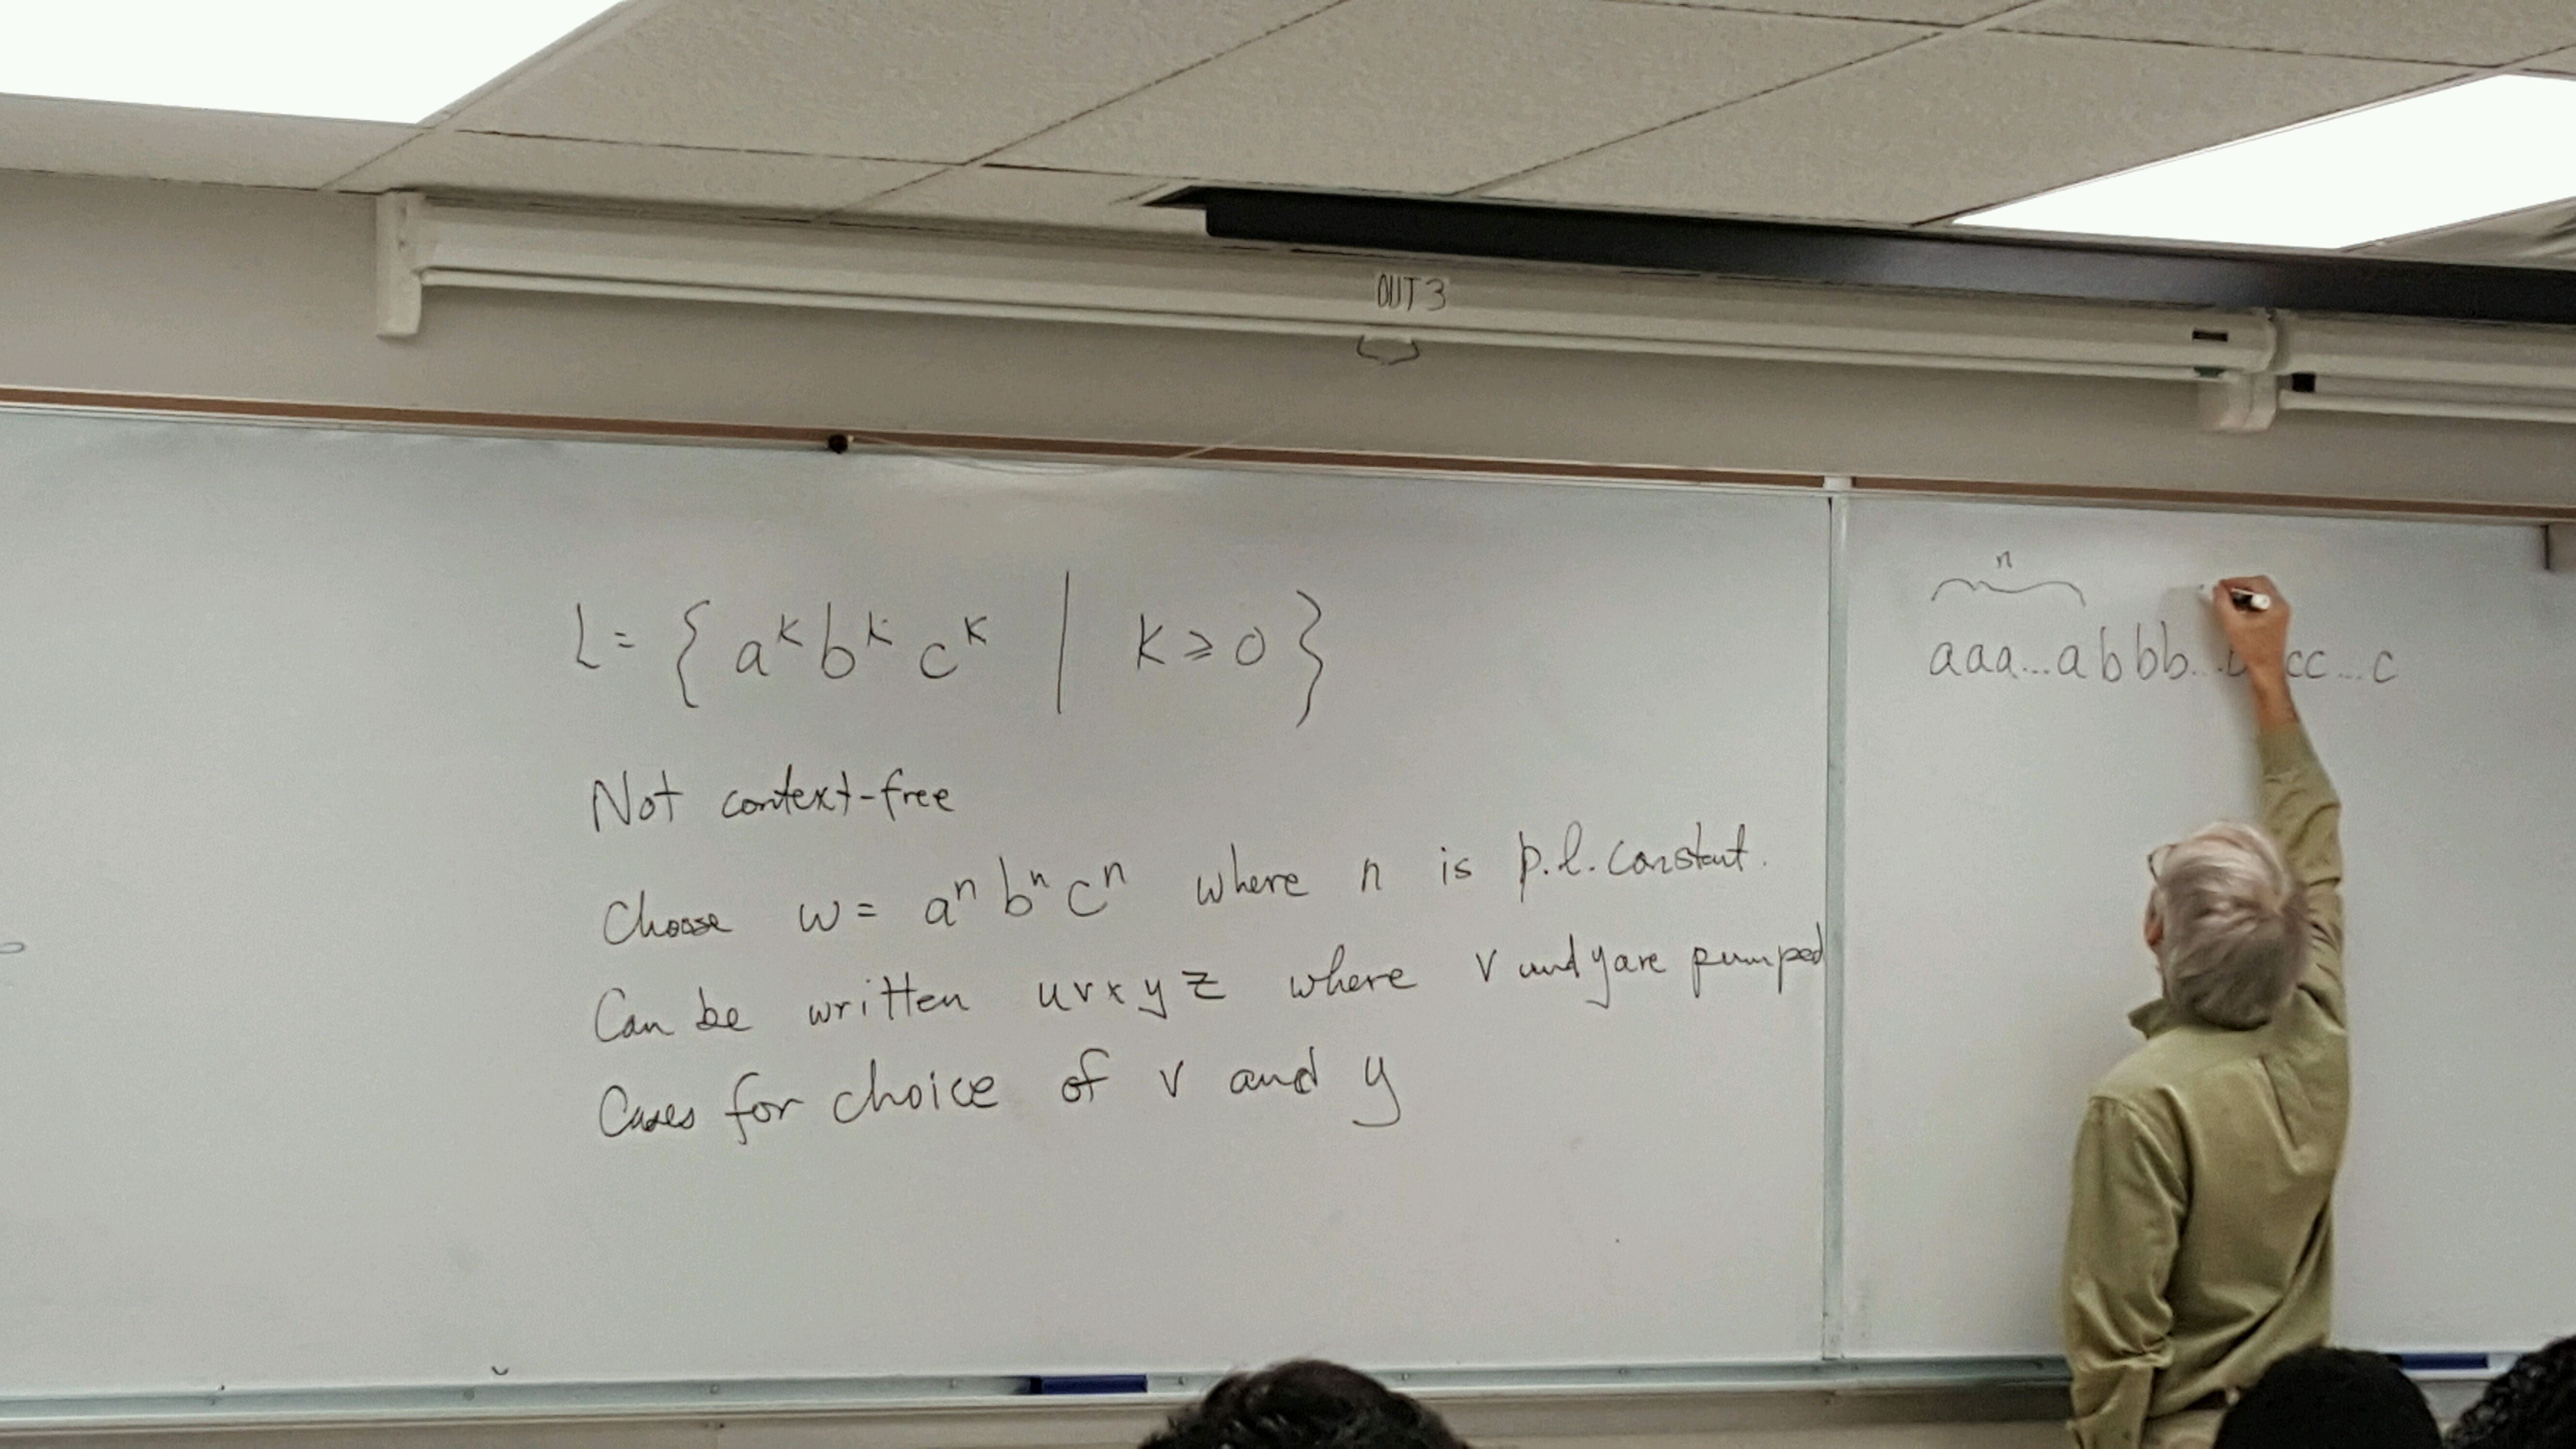 OUT 3
L = { a^k b^k c^k | k ≥ 0 }
Not context-free
Choose w = a^n b^n c^n where n is p.l. constant.
Can be written uvxyz where v and y are pumped
Cases for choice of v and y
n
aaa...abbb... cc...c